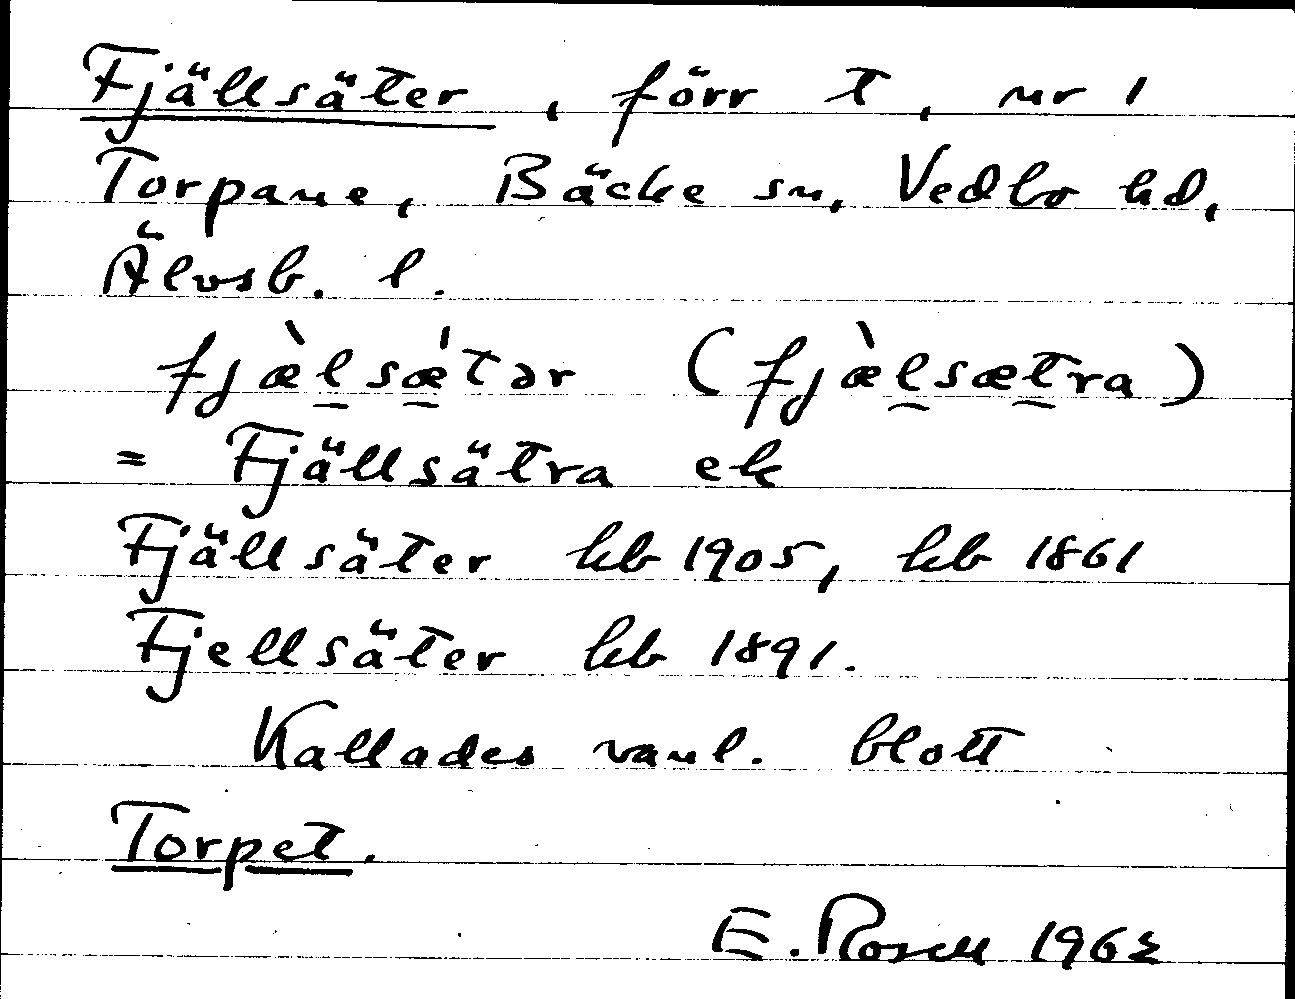 Fjällsäter, förr t, nr 1
Torpane, Bäcke sn, Vedbo hd,
Älvsb. l.
fjæ̀l̠sǽ̠tər (fjæ̀l̠sæt̠ra)
= Fjällsätra ek
Fjällsäter hb 1905, hb 1861
Fjellsäter hb 1891.
Kallades vanl. blott
Torpet.
E. Rosell 1962